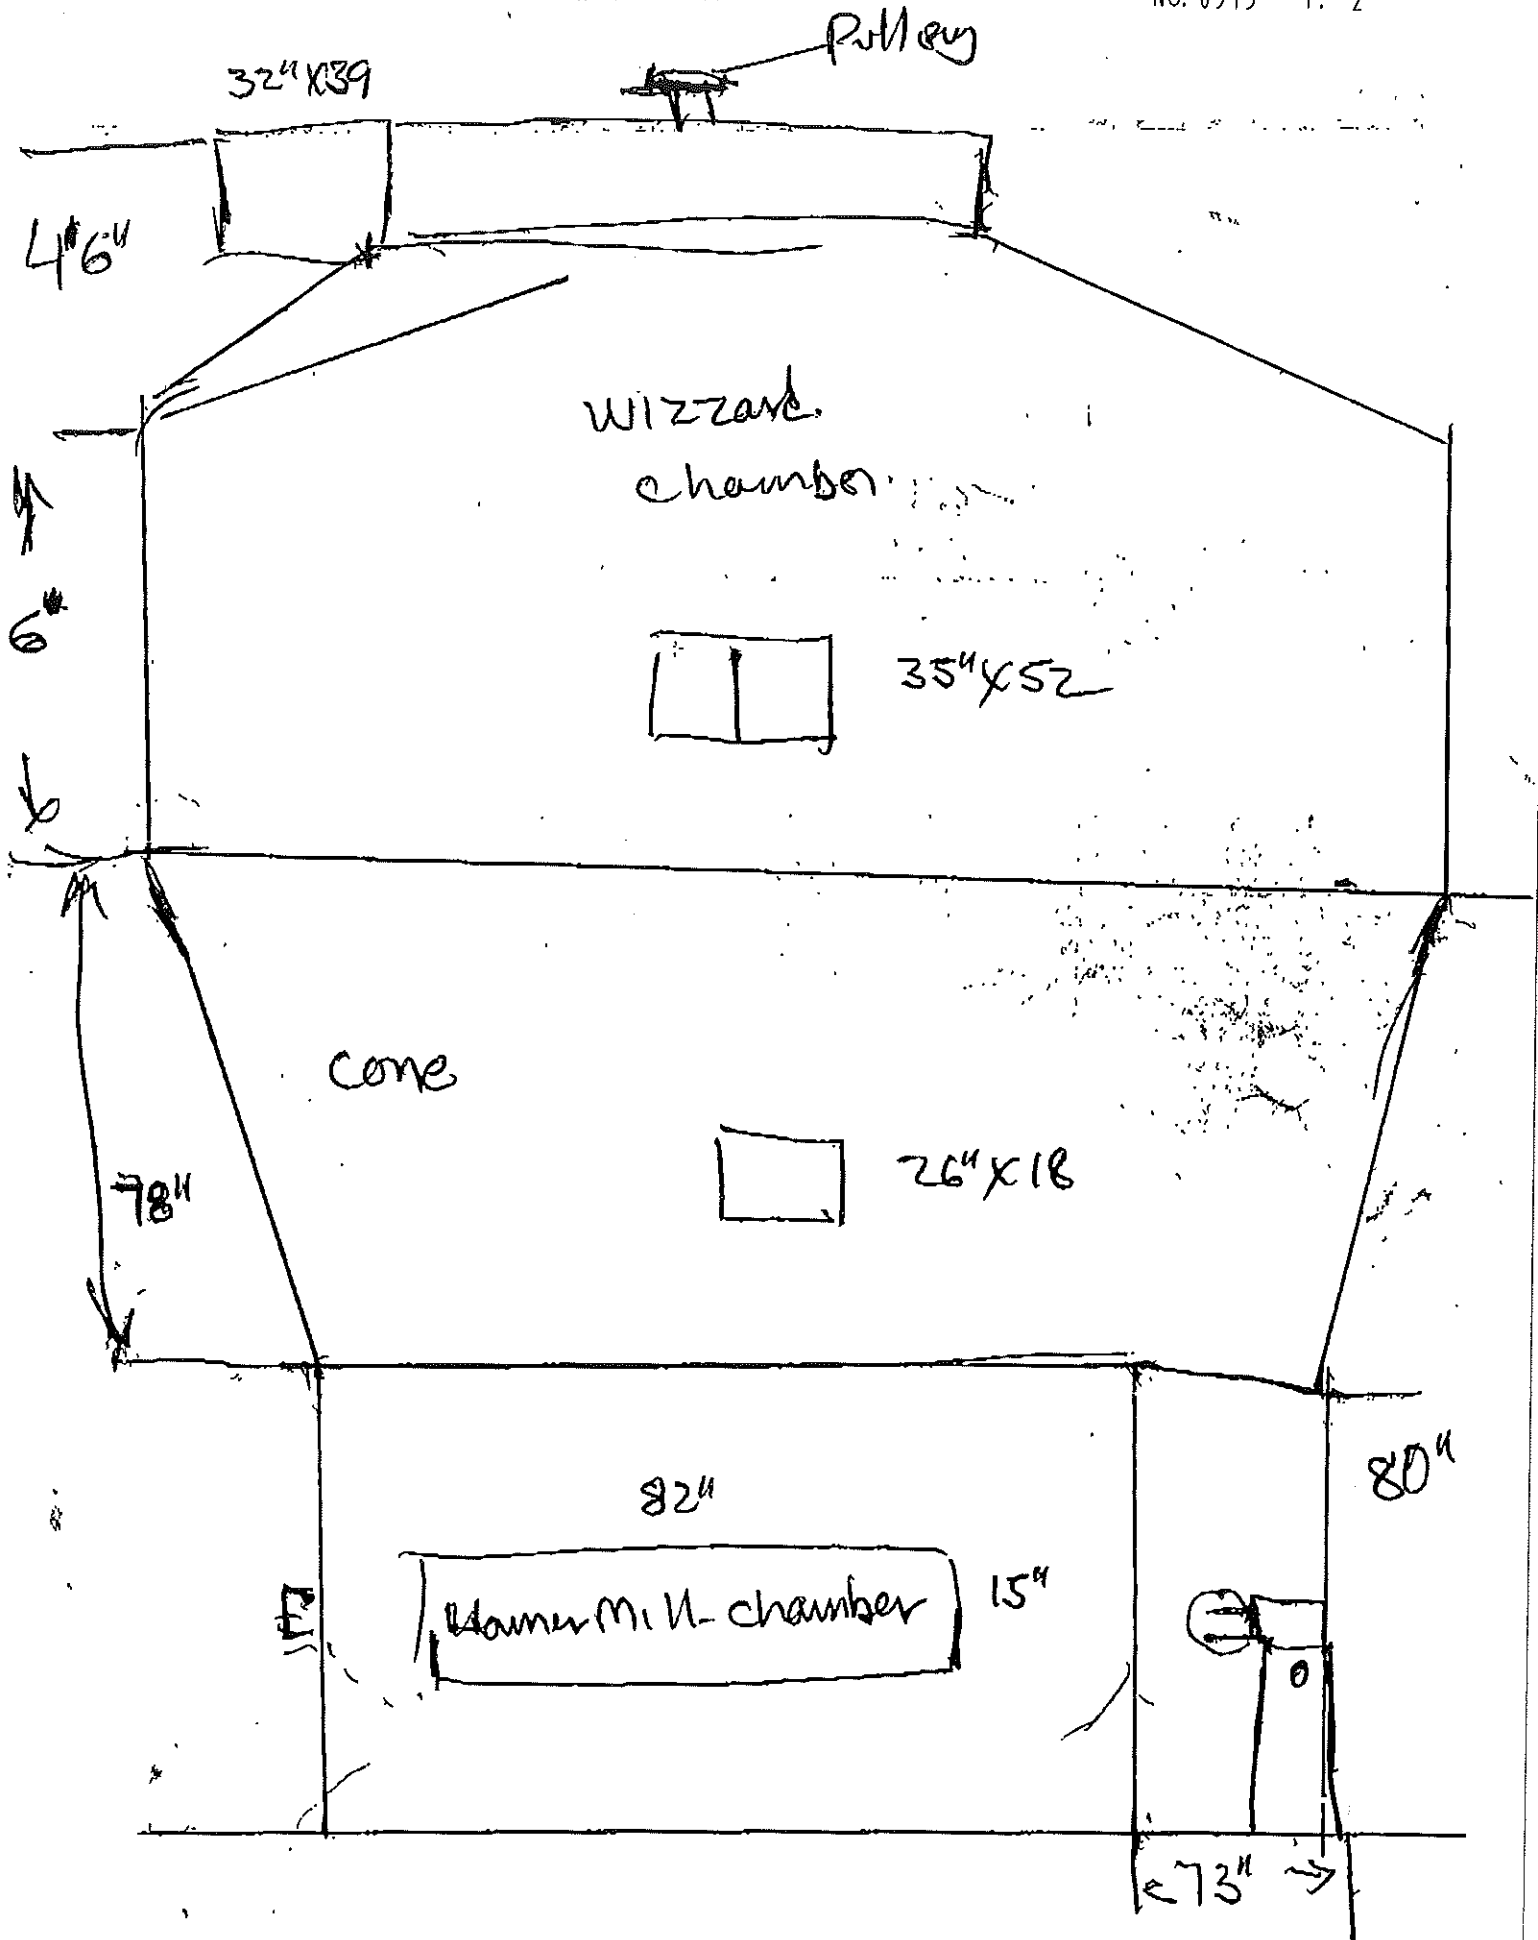 No. 0515 P. 2
Pulley
32"X39
4'6"
Wizzard.
chamber.
6"
35"X52
Cone
26"X18
78"
80"
82"
HamerMill-chamber
15"
0
73"